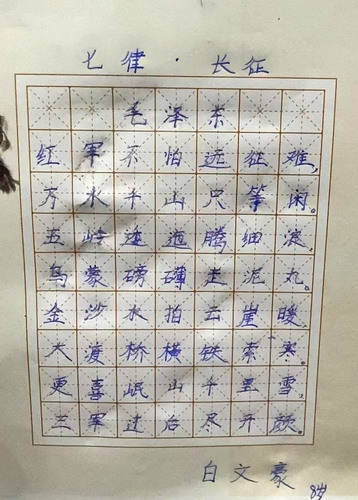 七律·长征
毛泽东
红军不怕远征难，
万水千山只等闲。
五岭逶迤腾细浪，
乌蒙磅礴走泥丸。
金沙水拍云崖暖，
大渡桥横铁索寒。
更喜岷山千里雪，
三军过后尽开颜。
白文豪
8岁